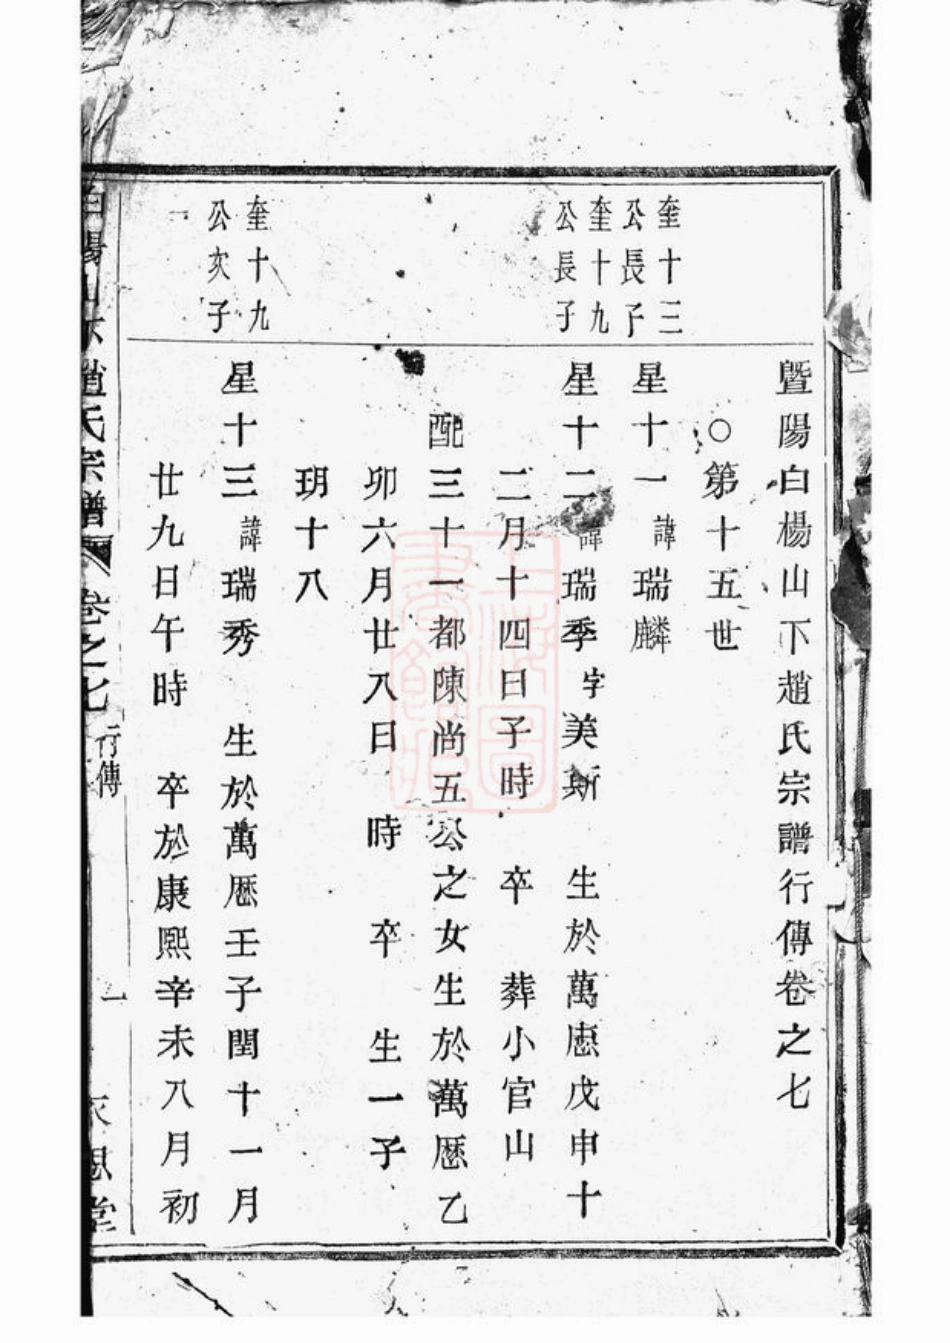 暨陽白楊山下趙氏宗譜行傳卷之七
○第十五世
奎十三
公長子
星十一 諱瑞麟
奎十九
公長子
星十二 諱瑞季 字美斯 生於萬歷戊申十
二月十四日子時 卒 葬小官山
配三十一都陳尚五公之女生於萬歷乙
卯六月廿八日 時 卒 生一子
玥十八
奎十九
公次子
星十三 諱瑞秀 生於萬歷壬子閏十一月
一
廿九日午時 卒於康熙辛未八月初
白楊山下趙氏宗譜 卷之七 行傳 一 思堂
上海圖書館藏